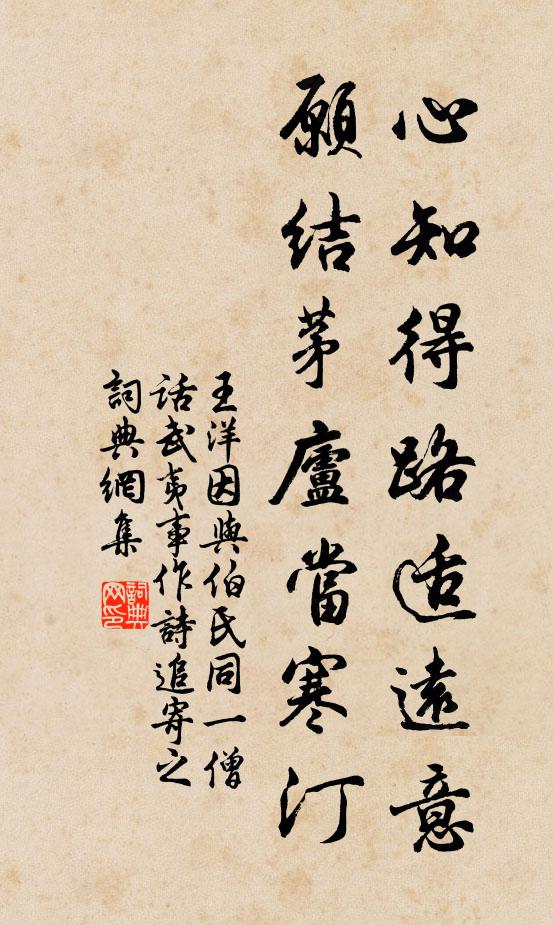 心知得路适遠意
願結茅廬當寒汀
王洋因與伯氏同一僧
话武夷事作詩追寄之
詞典網集
詞典网印